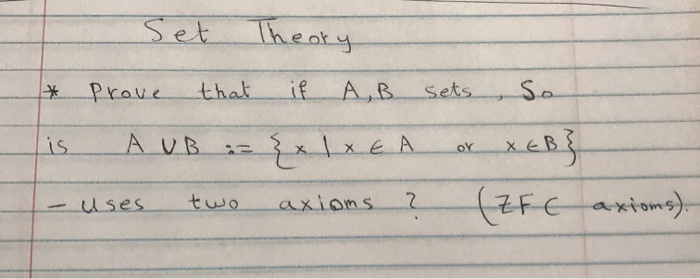 Set Theory
* Prove that if A, B sets, So
is A ∪ B := {x | x ∈ A or x ∈ B}
- Uses two axioms ? (ZFC axioms).